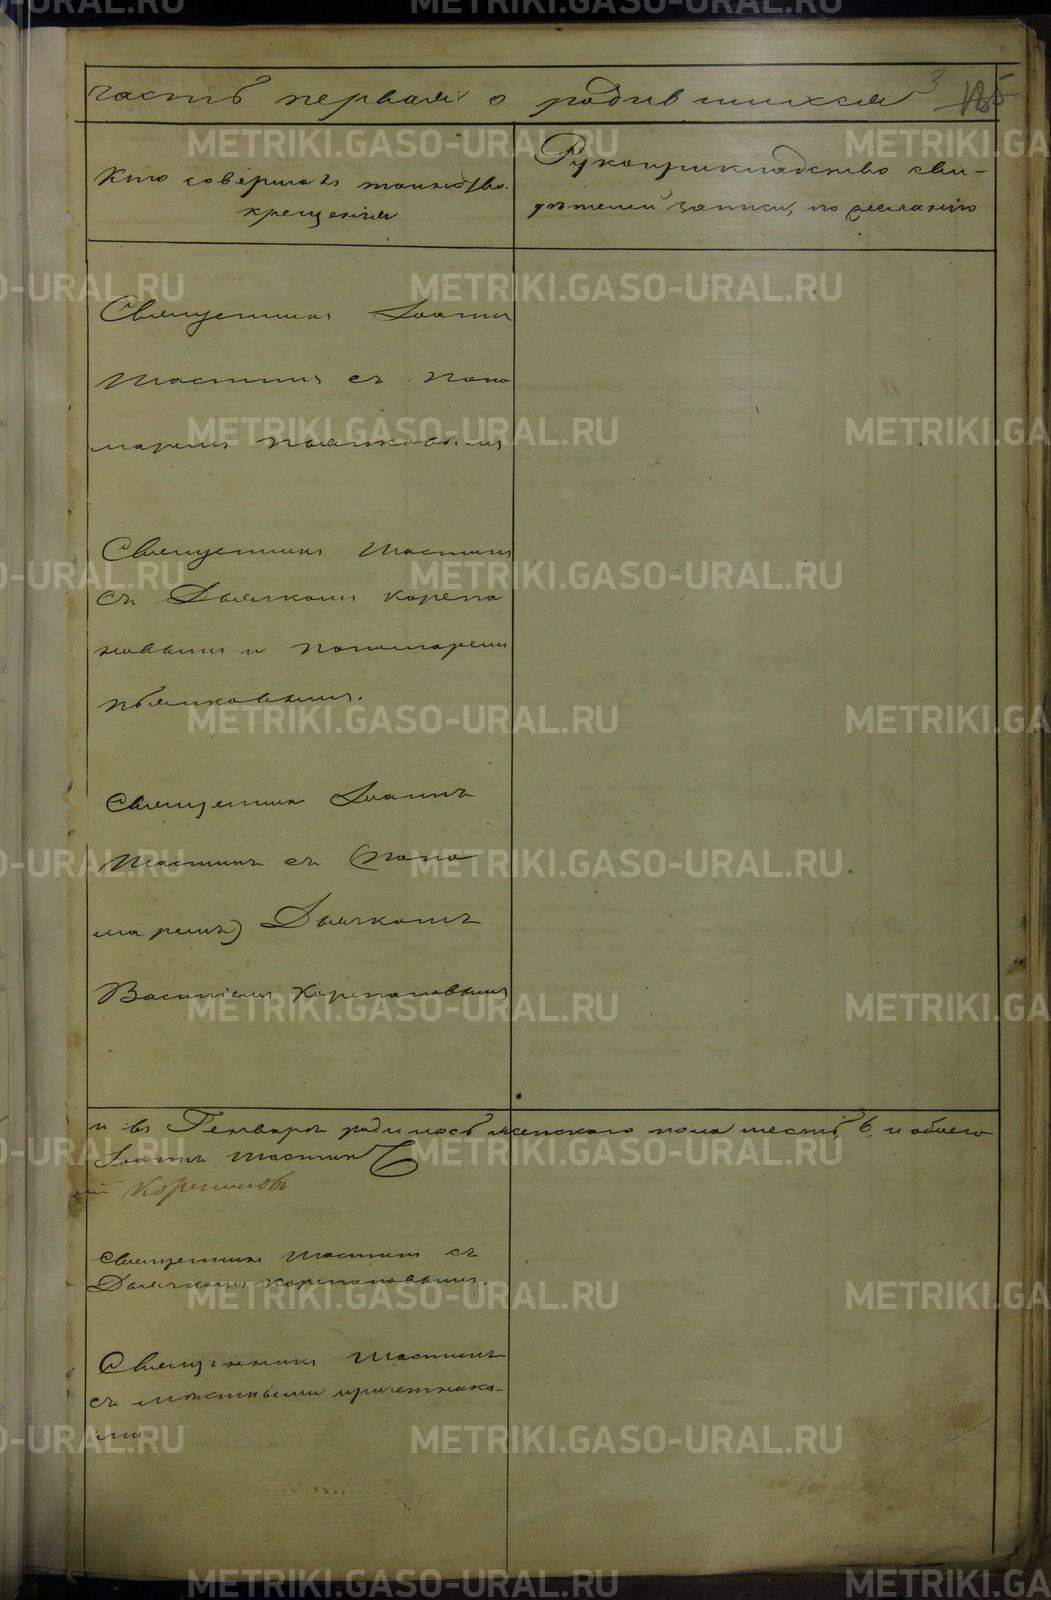 часть первая о родившихся 3
Кто совершалъ таинство
крещенія
Рукоприкладство сви-
дѣтелей записи, по желанію
Священникъ Іоаннъ
Шастинъ съ Поно
маремъ
Священникъ Шастинъ
съ Дьячкомъ Корепа
новымъ и пономаремъ
Священникъ Іоаннъ
Шастинъ съ (Поно
маремъ) Дьячкомъ
Василіемъ Корепановымъ
и въ Генварѣ родилось женскаго пола шесть, 6, и обоего
Іоаннъ Шастинъ
Священникъ Шастинъ съ
Дьячкомъ Корепановымъ.
Священникъ Шастинъ
съ мѣстными причетника-
ми.
METRIKI.GASO-URAL.RU